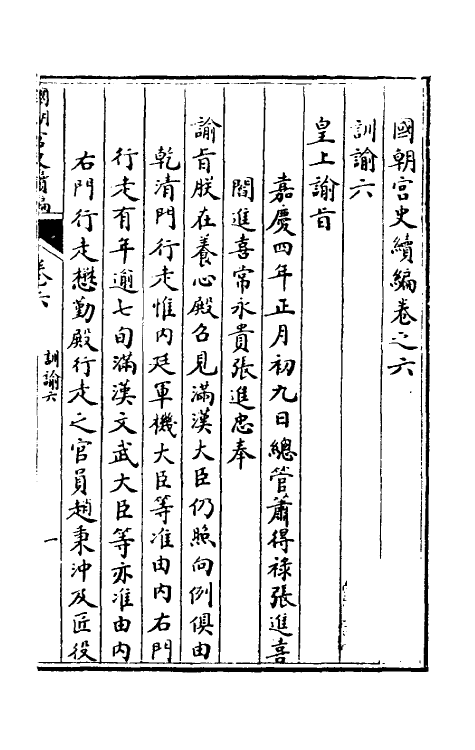 國朝宮史續編卷之六
訓諭六
皇上諭旨
嘉慶四年正月初九日總管蕭得祿張進喜
閻進喜常永貴張進忠奉
諭旨朕在養心殿召見滿漢大臣仍照向例俱由
乾清門行走惟內廷軍機大臣等准由內右門
行走有年逾七旬滿漢文武大臣等亦准由內
右門行走懋勤殿行走之官員趙秉沖及匠役
國朝宮史續編
卷六
訓諭六
一